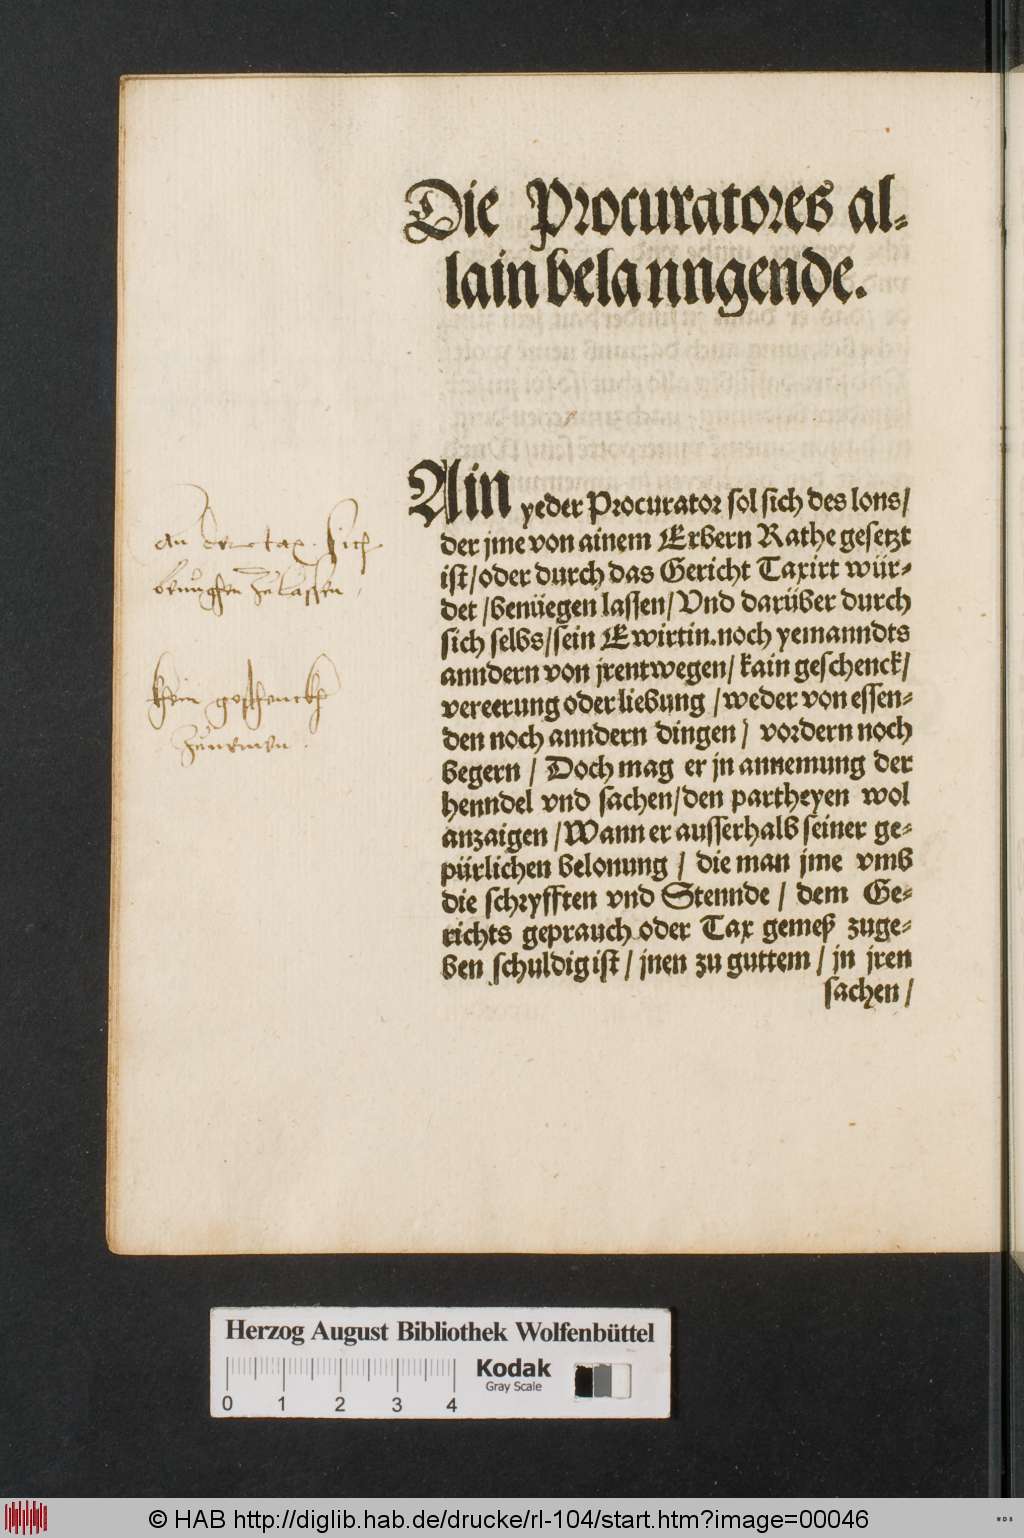 Die Procuratores al-
lain belanngende.
Ain yeder Procurator sol sich des lons/
der jme von ainem Erbern Rathe gesetzt
ist/oder durch das Gericht Taxirt wür-
det/benüegen lassen/Vnd darüber durch
sich selbs/sein Ewirtin.noch yemanndts
anndern von jrentwegen/kain geschenck/
vereerung oder liebung/weder von essen-
den noch anndern dingen/vordern noch
begern/Doch mag er jn annemung der
henndel vnd sachen/den partheyen wol
anzaigen/Wann er ausserhalb seiner ge-
pürlichen belonung/die man jme vmb
die schryfften vnd Stennde/dem Ge-
richts geprauch oder Tax gemeß zuge-
ben schuldig ist/jnen zu guttem/jn jren
sachen/
an der tax sich
benuegen zu lassen
khein geschenckh
zunemen.
Herzog August Bibliothek Wolfenbüttel
0 1 2 3 4
Kodak
Gray Scale
© HAB http://diglib.hab.de/drucke/rl-104/start.htm?image=00046